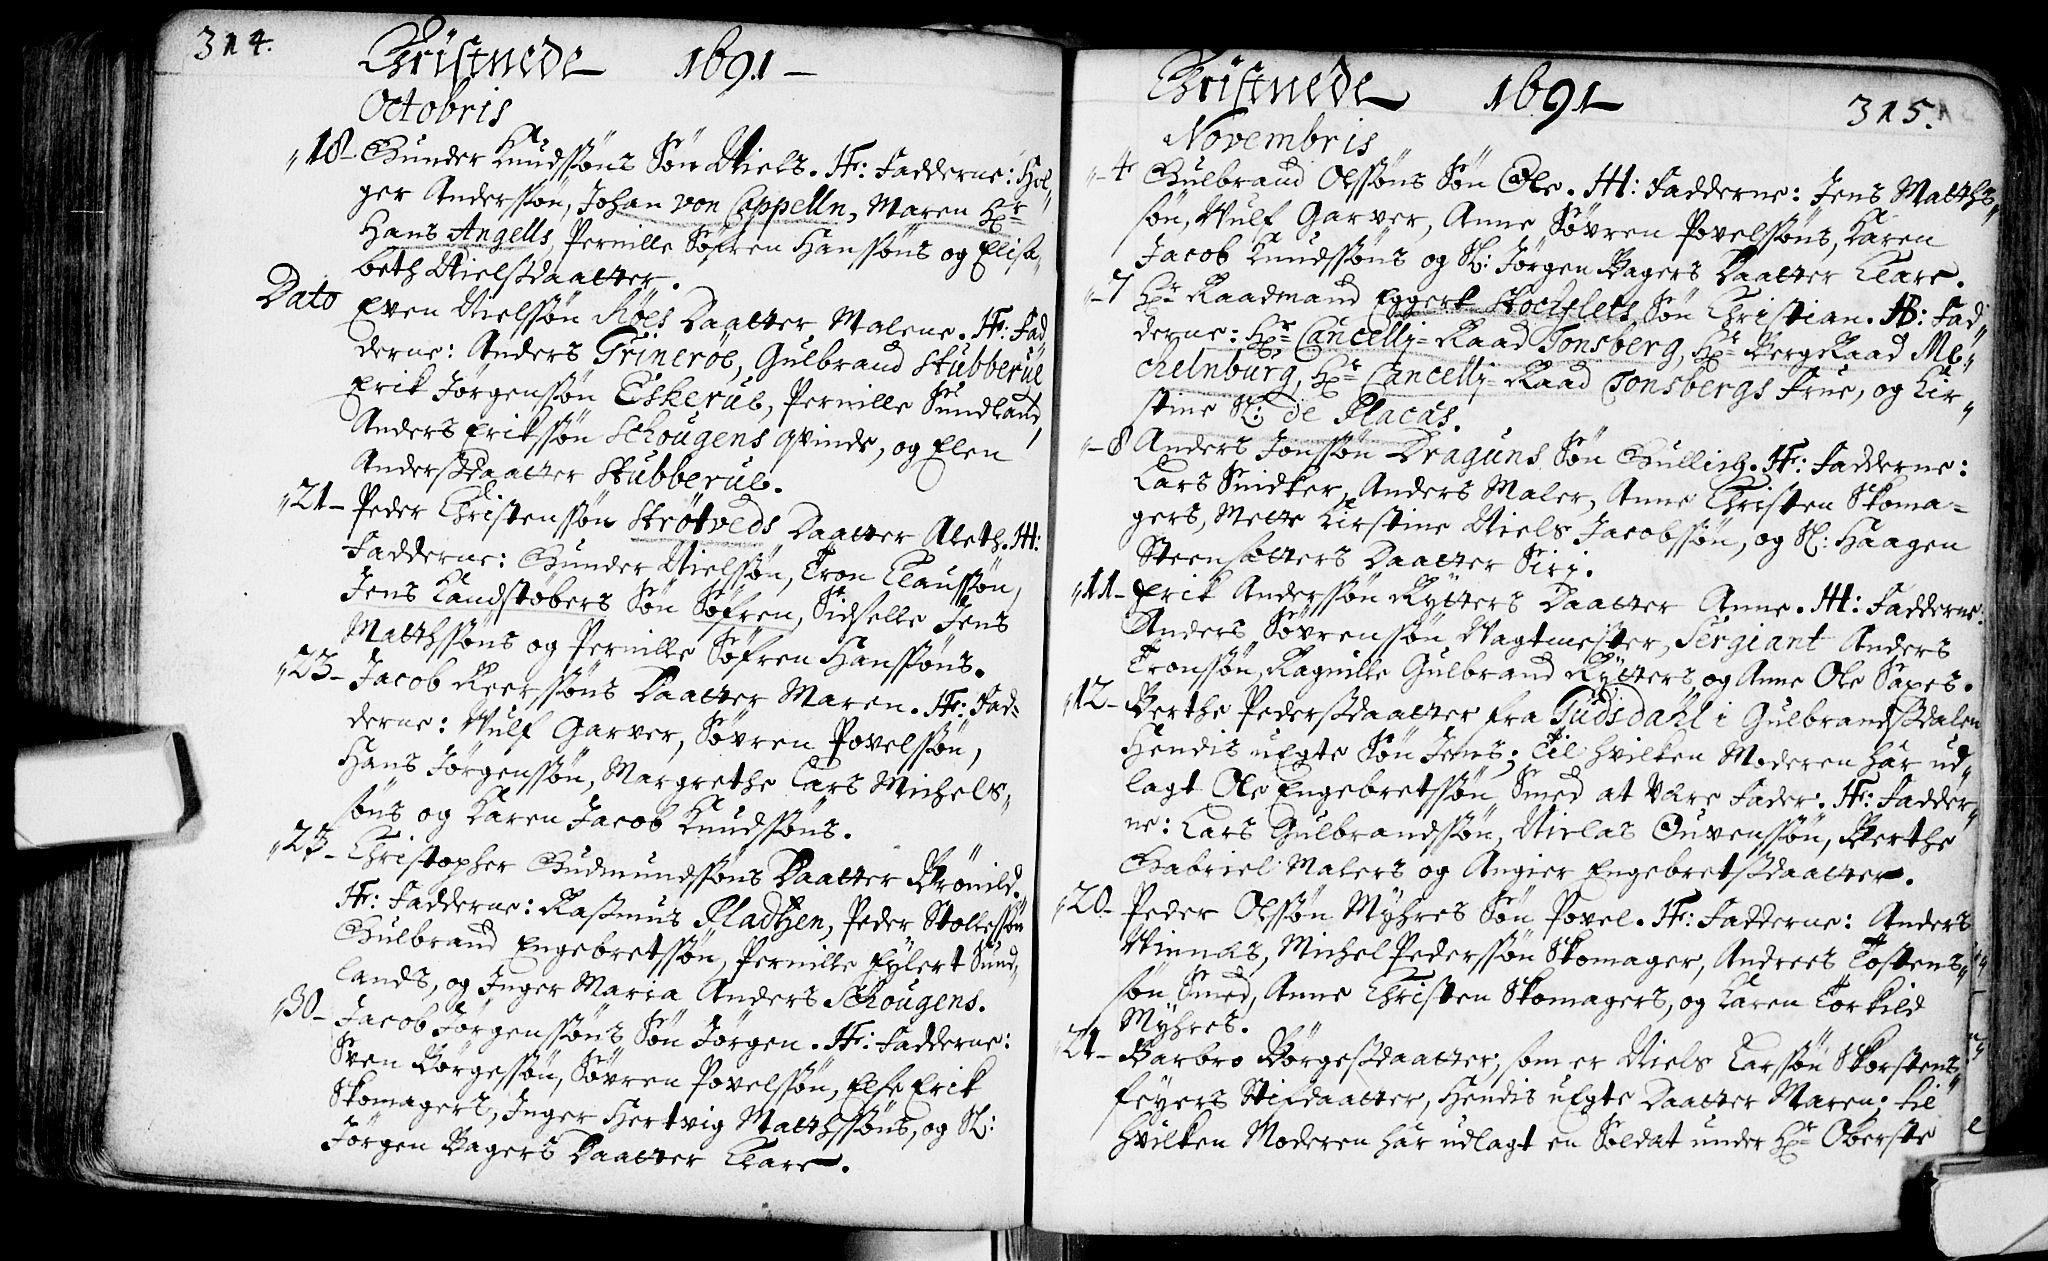 314.
Christnede 1691
Octobris
18 - Gunder Knudssøns Søn Niels. H: Fadderne: Hol-
ger Anderssøn, Johan von Cappelln, Maren Hr
Hans Angells, Pernille Søfren Hanssøns og Elisa-
beth Nielsdaatter.
Dato Even Nielssøn Røes Daatter Malene. H: Fad-
derne: Anders Trineröe, Gulbrand Stubberue
Erik Jørgenssøn Eskerue, Pernille Sundland,
Anders Erikssøn Schougens Qvinde, og Elen
Andersdaatter Stubberue.
21 - Peder Christenssøn Strötveds Daatter Aleth. H:
Fadderne: Gunder Nielssøn, Tron Claussøn,
Jens Kandstøbers Søn Søfren, Sidselle Jens
Matthssøns og Pernille Søfren Hanssøns.
23 - Jacob Reerssøns Daatter Maren. H: Fad-
derne: Wulf Garver, Søvren Povelssøn,
Hans Jørgenssøn, Margrethe Lars Michels-
søns og Karen Jacob Knudssøns.
23 - Christopher Gudmundssøns Daatter Brönild.
H: Fadderne: Rasmus Madtzen, Peder Stollessøn
Gulbrand Engebretssøn, Pernille Eylert Sund-
lands, og Inger Maria Anders Schougens.
30 - Jacob Jørgenssøns Søn Jørgen. H: Fadderne:
Sven Børgessøn, Søvren Povelssøn, Else Erik
Skomagers, Inger Hertvig Matthssøns, og Sl:
Jørgen Bagers Daatter Clare.
Christnede 1691
315.
Novembris
4 Gulbrand Olssøns Søn Ole. H: Fadderne: Jens Matths-
søn, Wulf Garver, Anne Søvren Povelssøns, Karen
Jacob Knudssøns og Sl: Jørgen Bagers Daatter Clare.
7 Hr Raadmand Eggert Stochflets Søn Christian. H: Fad-
derne: Hr Cancellj-Raad Tonsberg, Hr BergRaad Me-
chelnburg, Hr Cancellj-Raad Tonsbergs Frue, og Kir-
stine Sl: de Placas.
8 Anders Jonssøn Draguns Søn Gullich. H: Fadderne:
Lars Snidker, Anders Maler, Anne Christen Skoma-
gers, Mette Kirstine Niels Jacobssøn, og Sl: Haagen
Steensætters Daatter Siri.
11 - Erik Anderssøn Rytters Daatter Anne. H: Fadderne:
Anders Søvrenssøn Vagtmester, Sergiant Anders
Tronssøn, Ragnille Gulbrand Rytters og Anne Ole Saxes.
12 - Berthe Pedersdaatter fra Gudsdahl i Gulbrandsdalen
Hendis uEgte Søn Jens; Til hvilken Moderen har ud-
lagt Ole Engebretssøn Smed at være Fader. H: Fadder-
ne: Lars Gulbrandssøn, Niclas Ouvenssøn, Berthe
Gabriel Malers og Angier Engebretsdaatter.
20 - Peder Olssøn Myhres Søn Povel. H: Fadderne: Anders
Winnæs, Michel Pederssøn Skomager, Andrees Tostens-
søn Smed, Anne Christen Skomagers, og Karen Torkild
Myhres.
21 - Barbro Børgesdaatter, som er Niels Larssøn Skorstens-
feyers Stifdaatter, Hendis uEgte Daatter Maren; til
hvilken Moderen har udlagt en Soldat under Hr Oberste